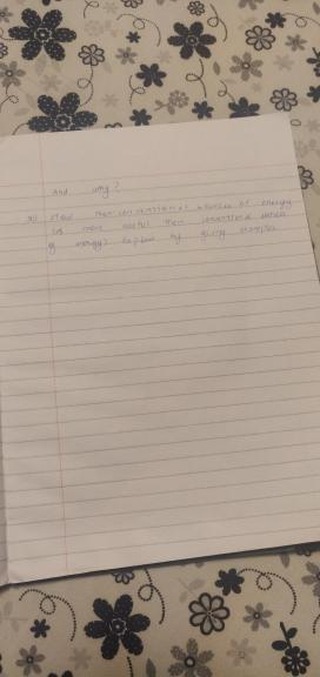 and why?
non conventional sources of energy
more useful than conventional sources
of energy? Explain by giving examples